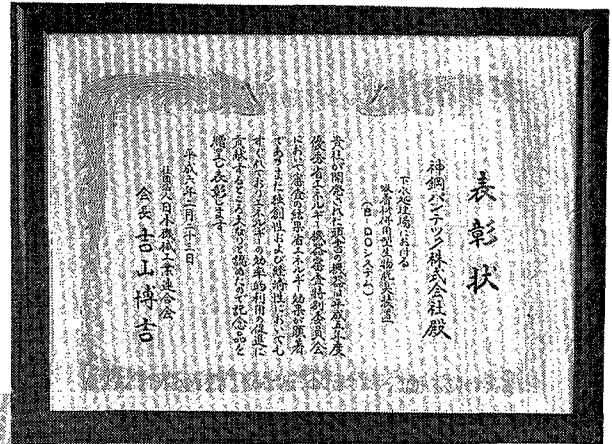 表彰状
神鋼パンテツク株式会社殿
下水処理場における
吸着材併用型生物脱臭装置
(B-DOシステム)
貴社が開発された頭書の機器は平成五年度
優秀省エネルギー機器審査特別委員会
において審査の結果省エネルギー効果が顕著
であり また独創性および経済性においても
すぐれておりエネルギーの効率的利用の促進に
貢献するところ大なりと認めたので記念品を
贈呈し表彰します
平成六年二月二十二日
社団法人日本機械工業連合会
会長吉山博吉